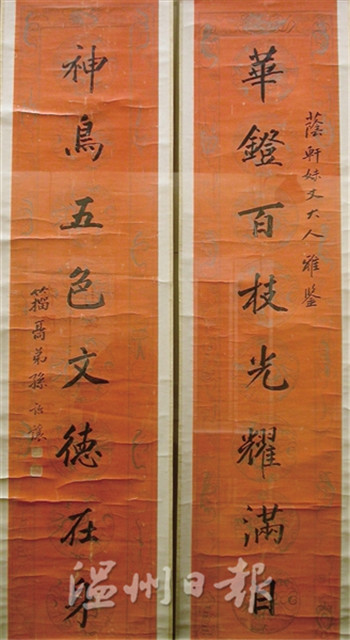 蔭軒妹丈大人雅鑒
華鐙百枝光耀滿目
神鳥五色文德在身
籀弟孫詒讓
温州日報